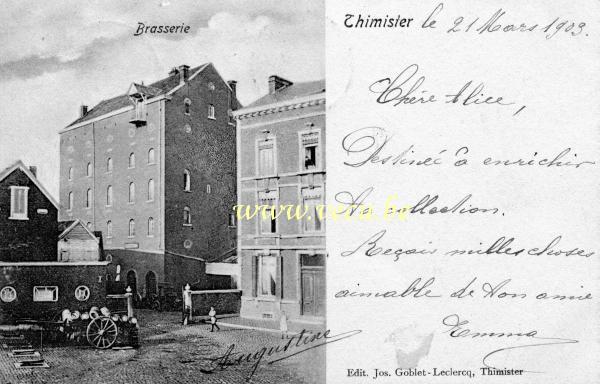 Brasserie
Thimister le 21 Mars 1903.
Chère Alice,
Destinée à enrichir
ta collection.
Reçois milles choses
aimable de ton amie
Emma
Augustine
www.vecu.be
Edit. Jos. Goblet-Leclercq, Thimister